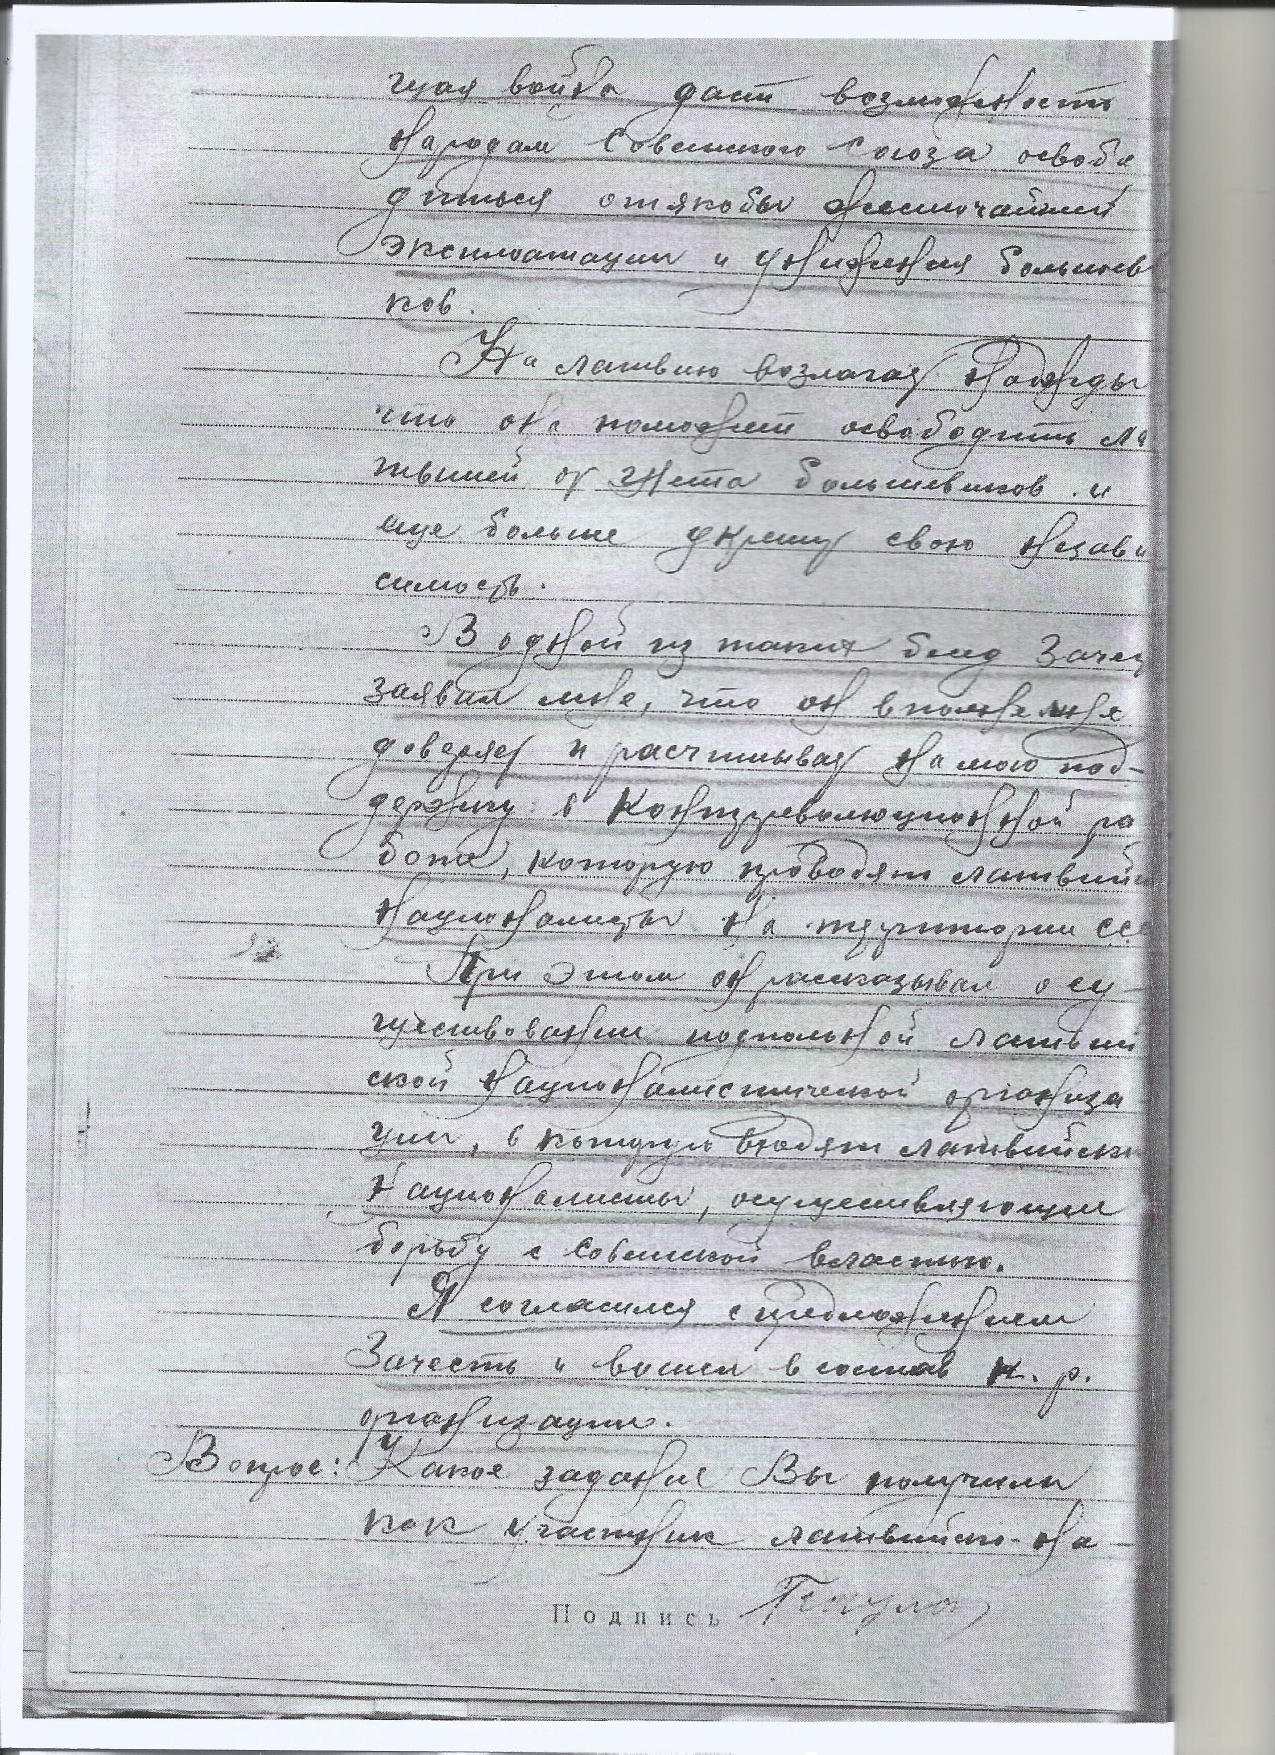 щая война даст возможность
народам Советского Союза освобо
диться от якобы жесточайшей
эксплоатации и унижения большев
ков.
На Латвию возлагая надежды
что она поможет освободить ла
тышей от гнета большевиков и
еще больше укрепит свою незави
симость.
В одной из таких бесед Зачес
заявил мне, что он вполне мне
доверяет и расчитывает на мою под-
держку в контрреволюционной ра
боте, которую проводят латвийс
националисты на территории ССС
При этом он рассказывал о су-
ществовании подпольной латвий
ской национилистической организа
ции, в которую входят латвийски
националисты, осуществляющие
борьбу с советской властью.
Я согласился с предложением
Зачесть и вошел в состав к.р.
организации.
Вопрос: Какое задание Вы получили
как участник латвийско-на-
Подпись